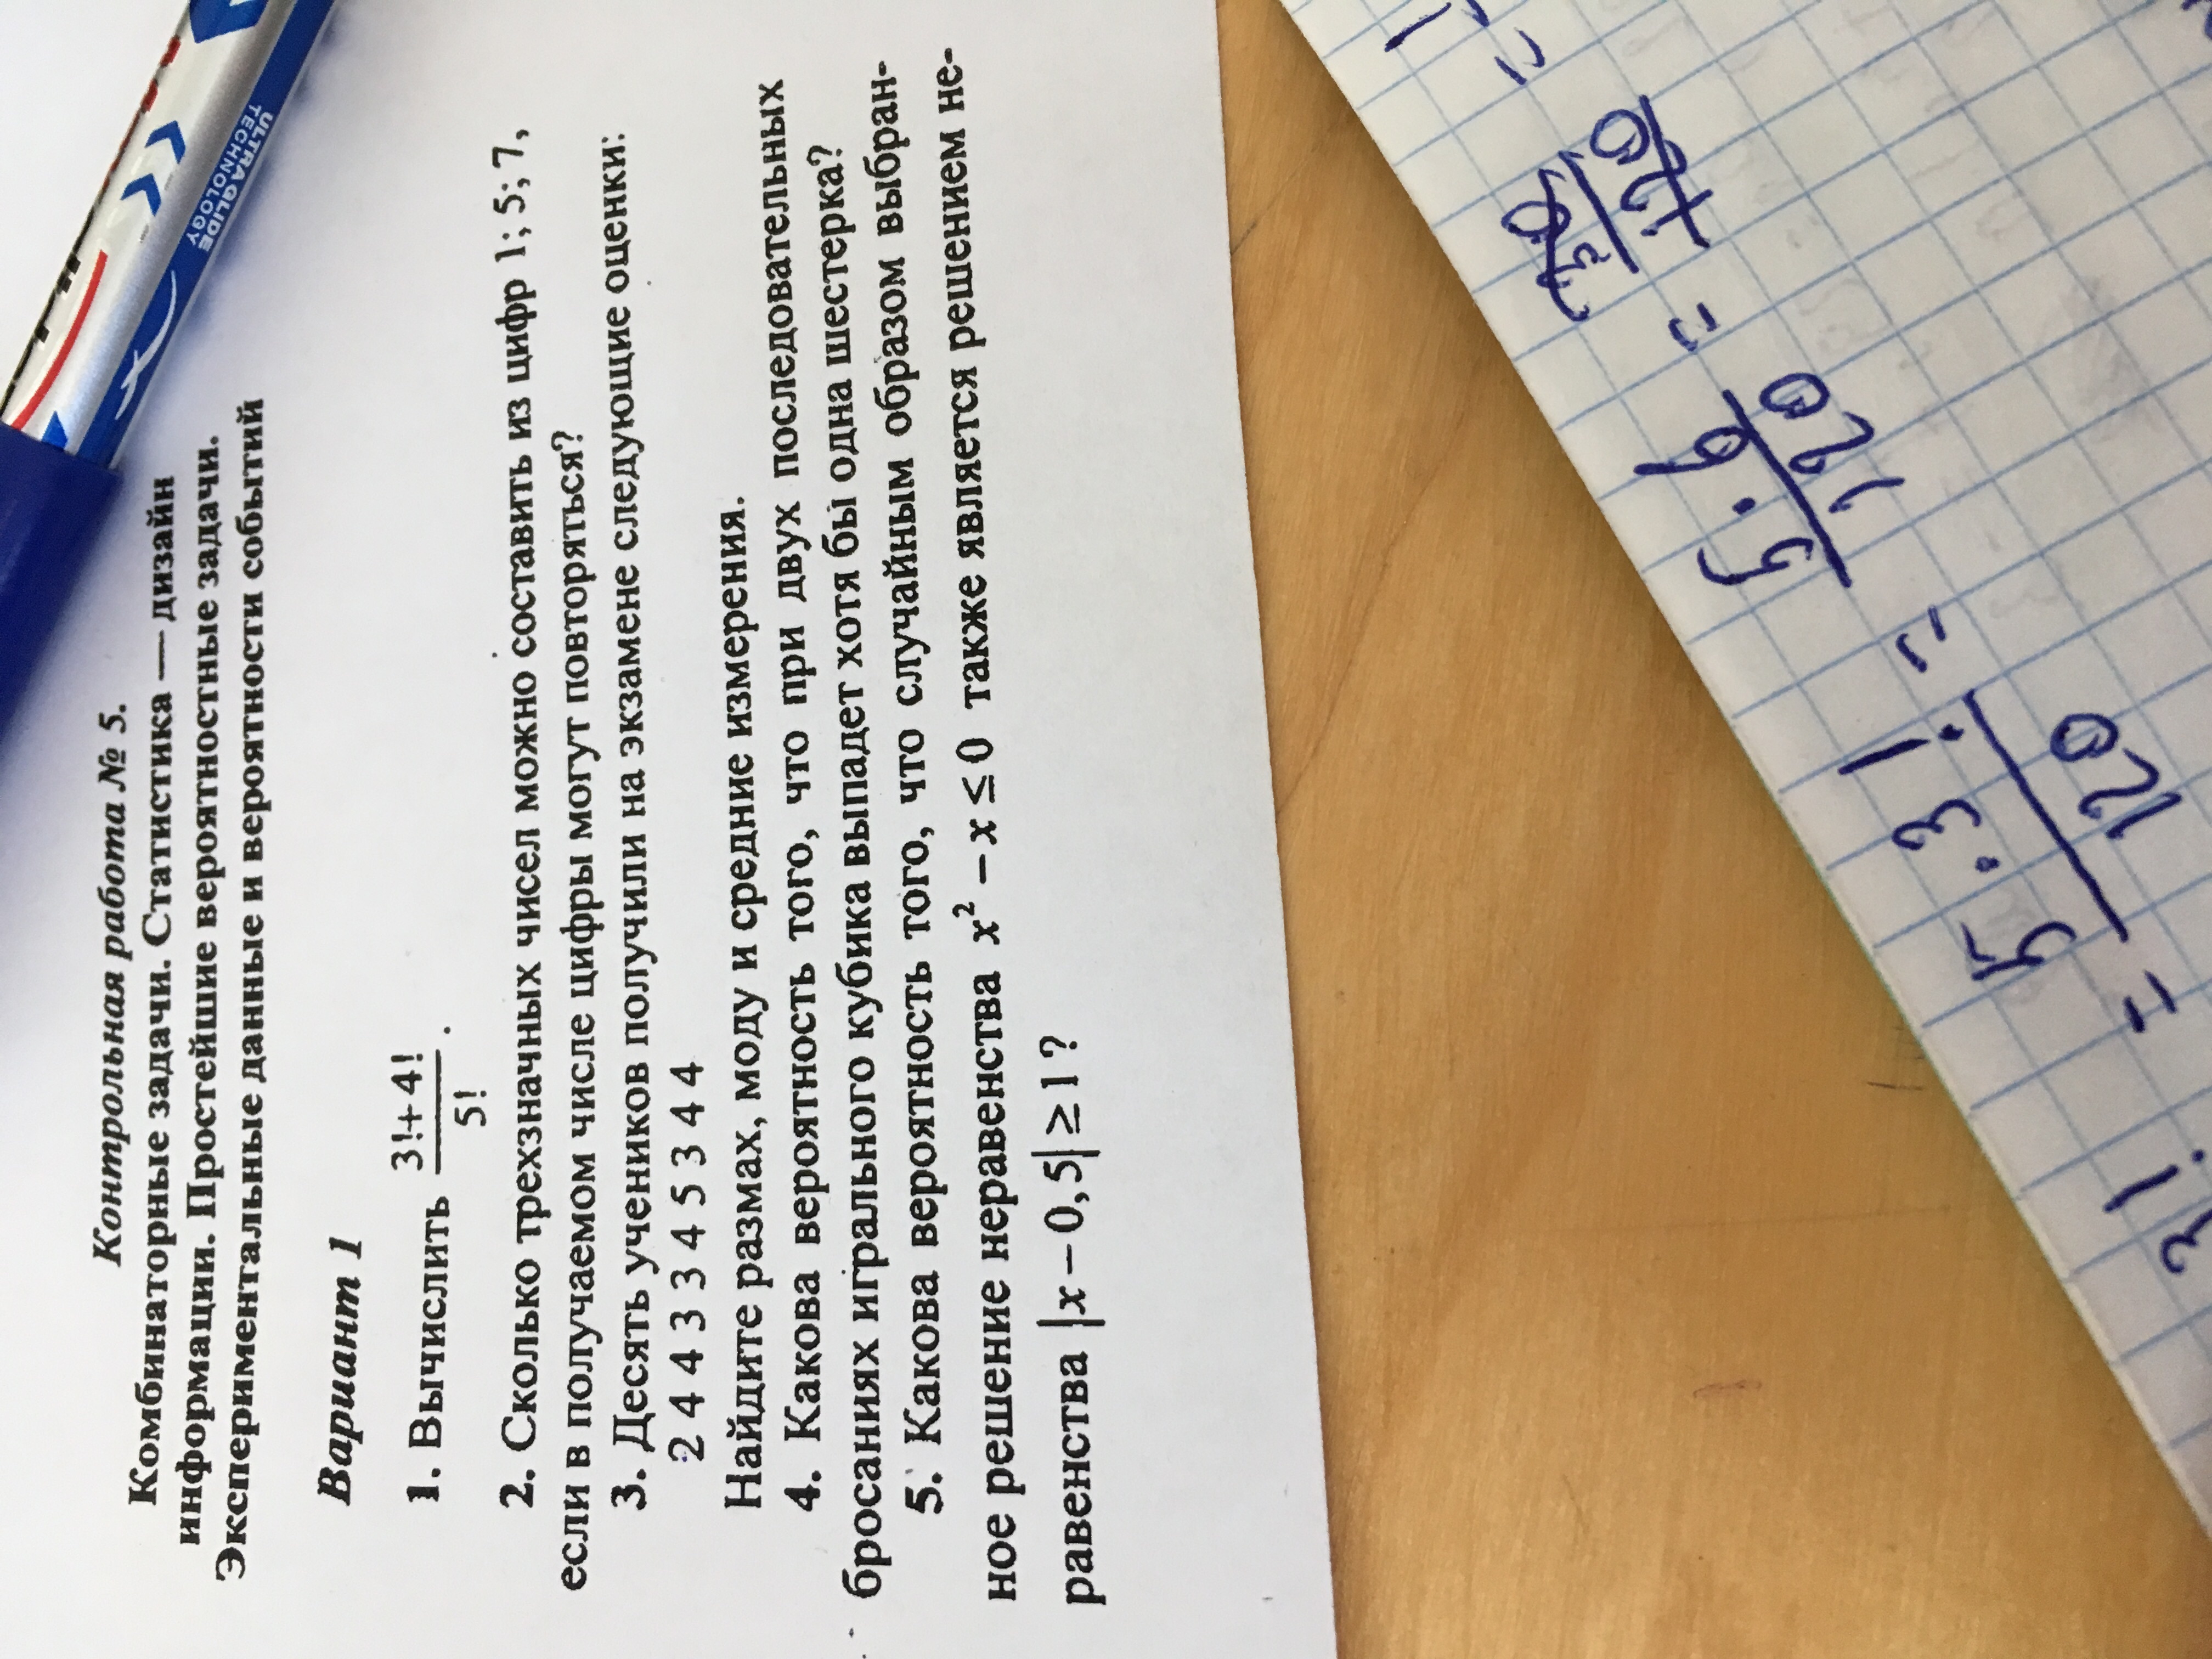 Контрольная работа № 5.
Комбинаторные задачи. Статистика — дизайн
информации. Простейшие вероятностные задачи.
Экспериментальные данные и вероятности событий
Вариант 1
1. Вычислить (3!+4!)/5! .
2. Сколько трехзначных чисел можно составить из цифр 1; 5; 7,
если в получаемом числе цифры могут повторяться?
3. Десять учеников получили на экзамене следующие оценки:
2 4 4 3 3 4 5 3 4 4
Найдите размах, моду и средние измерения.
4. Какова вероятность того, что при двух последовательных
бросаниях игрального кубика выпадет хотя бы одна шестерка?
5. Какова вероятность того, что случайным образом выбран-
ное решение неравенства x² – x ≤ 0 также является решением не-
равенства |x – 0,5| ≥ 1 ?
ULTRAGLIDE
TECHNOLOGY
3!
= 5·3!/120 = 5·6/120 =